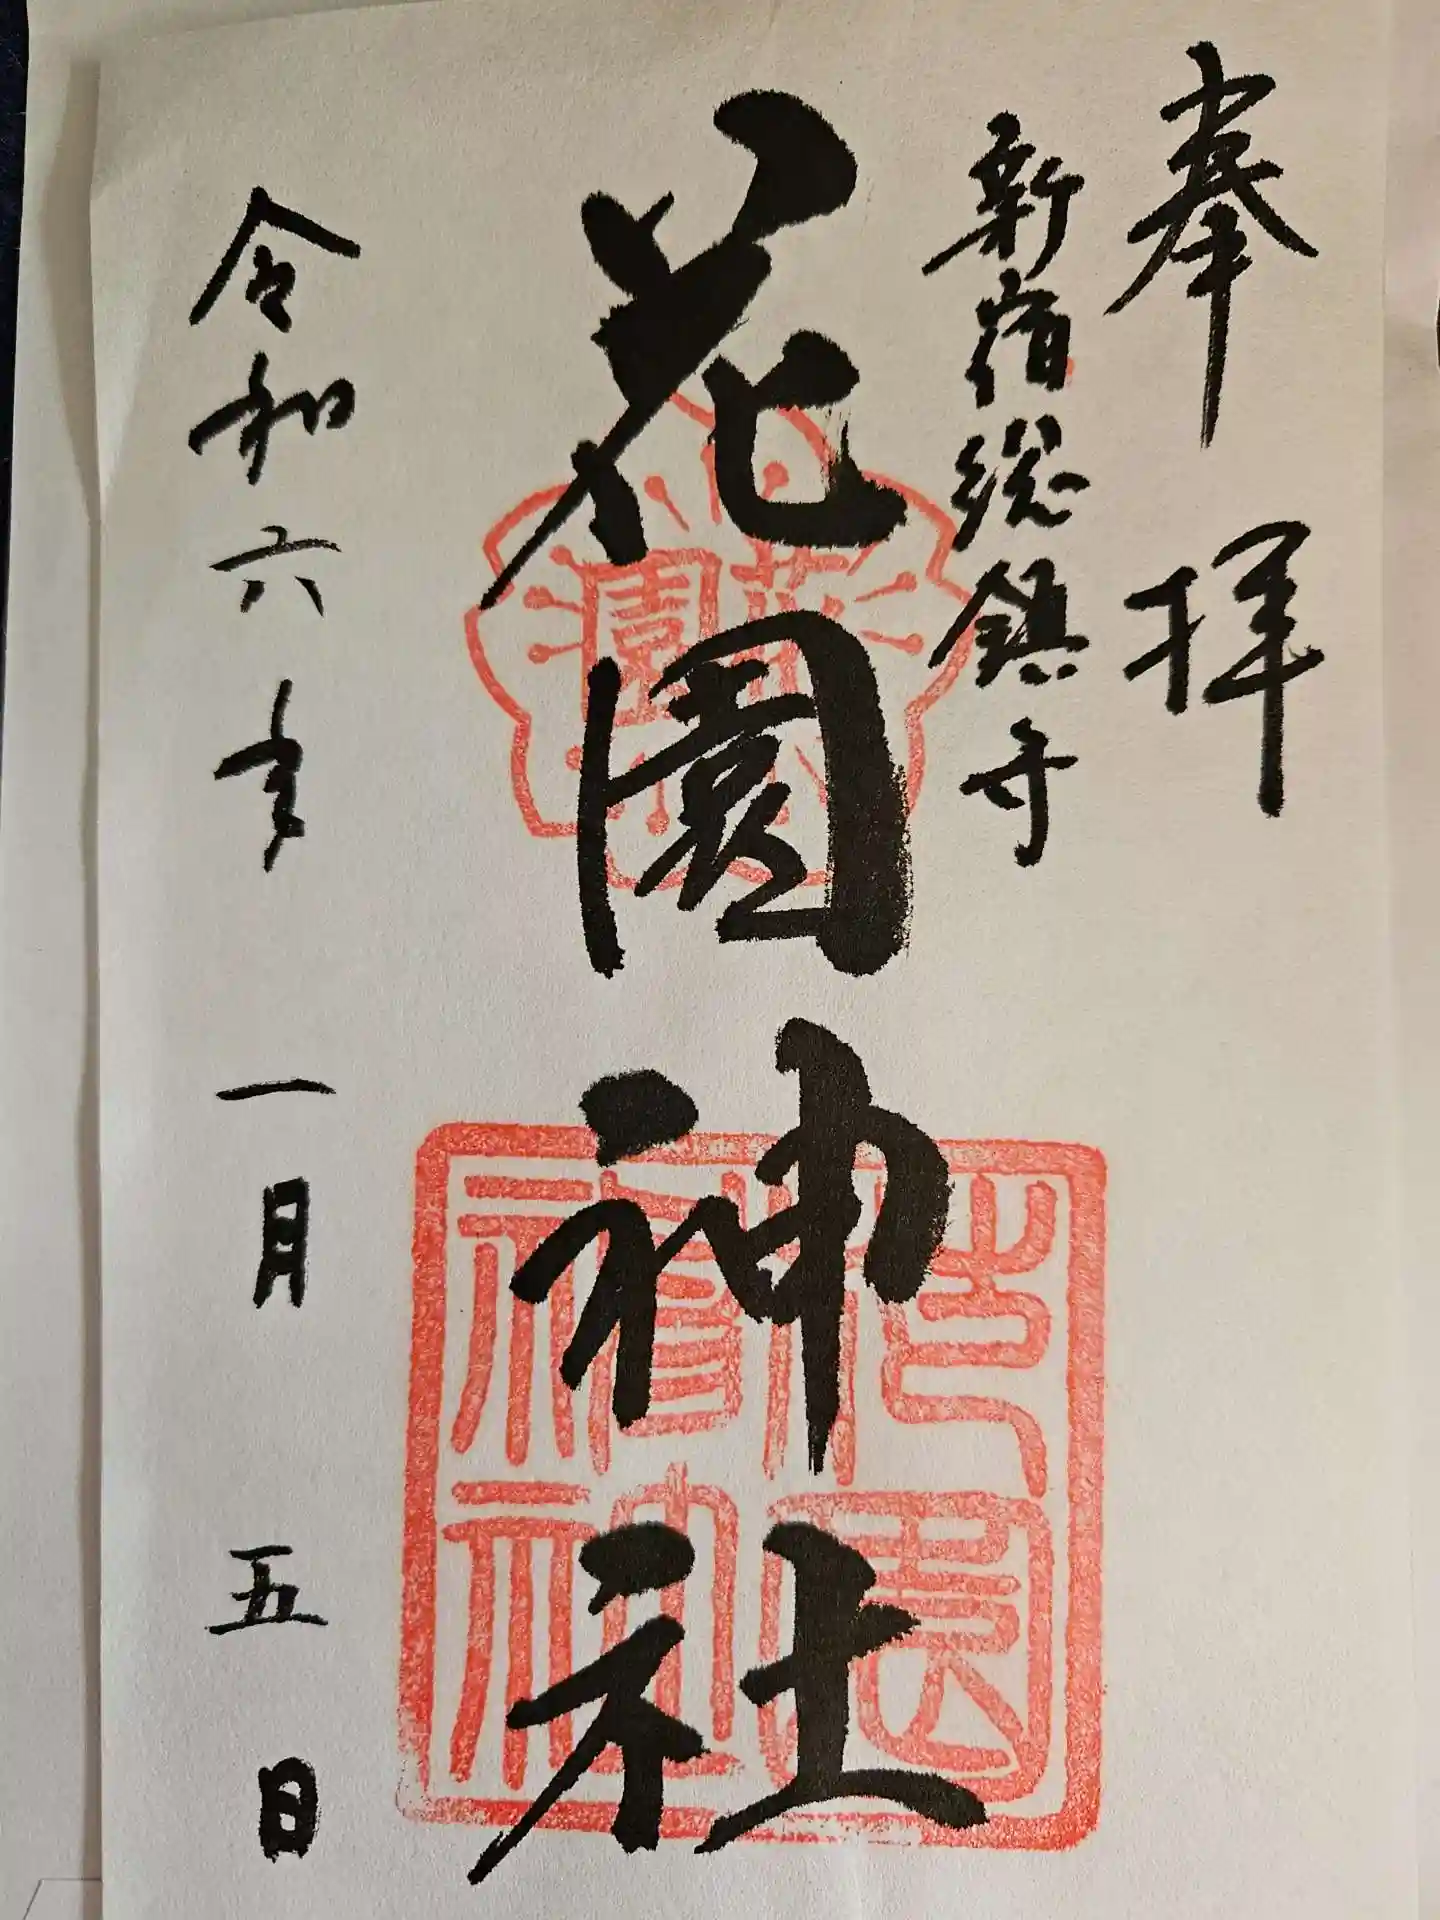 奉拝
新宿総鎮守
花園神社
花園
花園神社
令和六年一月五日